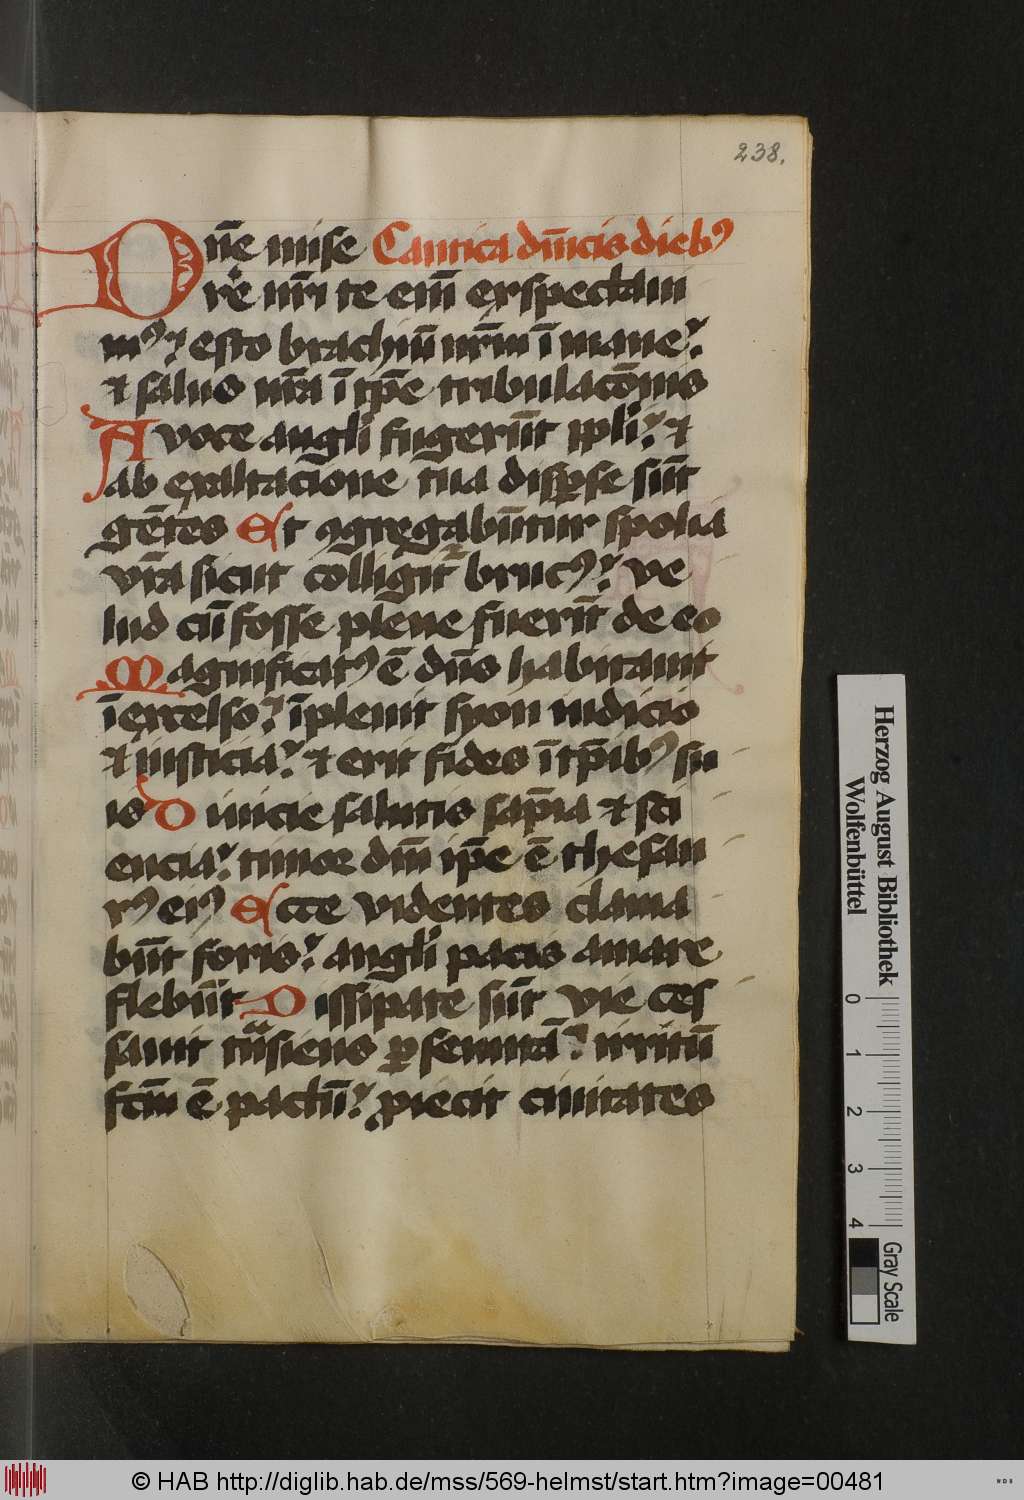 238.
Dn̄e mise Cantica dn̄icis dieb9
rē nr̄i te em̄ exspectaui
m9 esto brachiū nr̄m ī mane
et salus nr̄a ī tp̄e tribulacōnis
A voce angli fugerūt ppli et
ab exaltacione tua disperse sūt
gētes Et ꝯgregabūtur spolia
vr̄a sicut colligitr bruc9 ve
lud cū fosse plene fuerīt de eo
Magnificat9 ē dn̄s habitauit
ī excelso īpleuit syon iudicio
et iusticia et erit fides ī tp̄ib9 su
is Diuicie salutis sap̄ia et sci
encia timor dn̄i ip̄e ē thesau
r9 ei9 Ecce videntes clama
būt foris angli pacis amare
flebūt Dissipate sūt vie ces
sauit trāsiens ꝑ semitā irritū
fc̄m ē pactū ꝓiecit ciuitates
Herzog August Bibliothek
Wolfenbüttel
0 1 2 3 4
Gray Scale
© HAB http://diglib.hab.de/mss/569-helmst/start.htm?image=00481